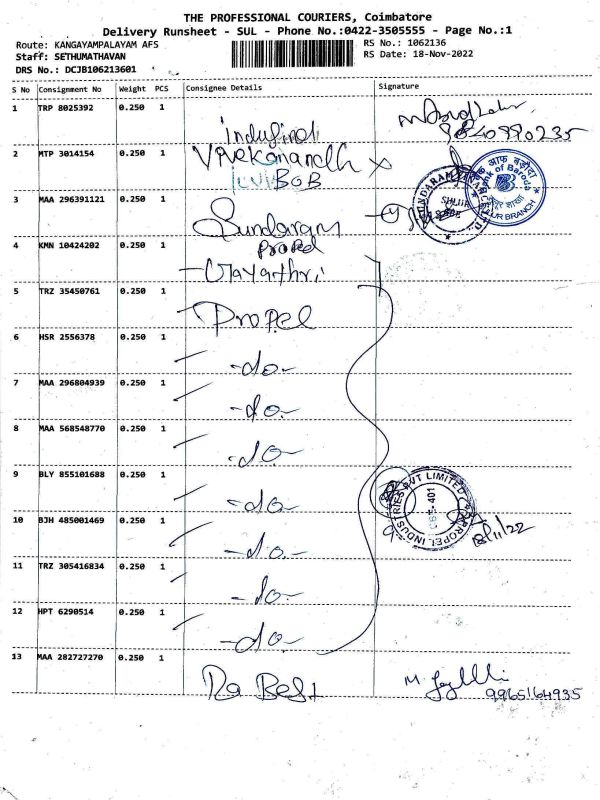 THE PROFESSIONAL COURIERS, Coimbatore
Delivery Runsheet - SUL - Phone No.:0422-3505555 - Page No.:1
Route: KANGAYAMPALAYAM AFS
RS No.: 1062136
Staff: SETHUMATHAVAN
RS Date: 18-Nov-2022
DRS No.: DCJB106213601
S No Consignment No Weight PCS Consignee Details Signature
1 TRP 8025392 0.250 1
9840990235
2 MTP 3014154 0.250 1 Vivekanandh
BOB
बैंक ऑफ़ बड़ौदा
Bank of Baroda
SULUR BRANCH
3 MAA 296391121 0.250 1 Sundaram
SUNDARAM
4 KMN 10424202 0.250 1 Propel
Gayathri
5 TRZ 35450761 0.250 1 Propel
6 HSR 2556378 0.250 1 -do-
7 MAA 296804939 0.250 1 -do-
8 MAA 568548770 0.250 1 -do-
9 BLY 855101688 0.250 1 -do-
PROPEL INDUSTRIES PVT LIMITED
10 BJH 485001469 0.250 1 -do-
18/11/22
11 TRZ 305416834 0.250 1 -do-
12 HPT 6290514 0.250 1 -do-
13 MAA 282727270 0.250 1 Ra Best
9965164935